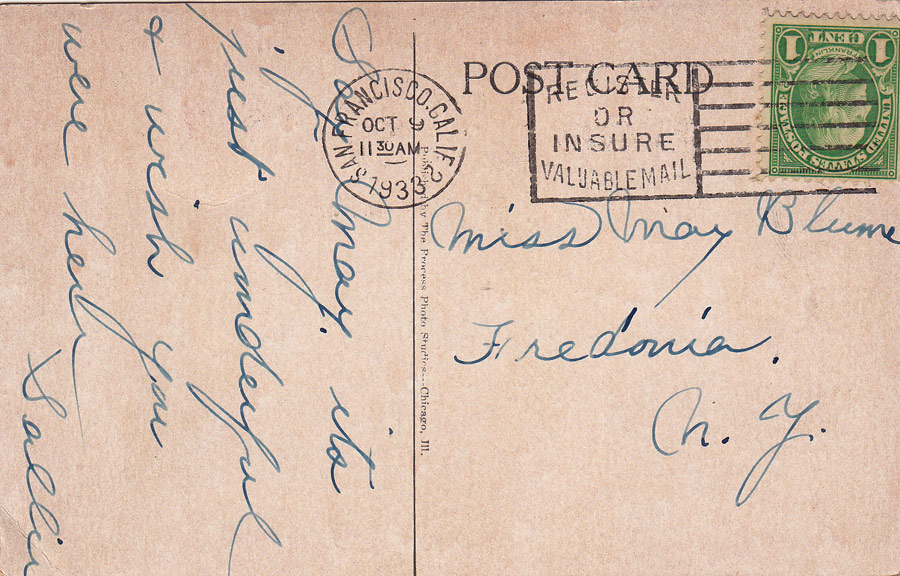 POST CARD
SAN FRANCISCO, CALIF. 2
OCT 9
11 30 AM
1933
REGISTER
OR
INSURE
VALUABLE MAIL
UNITED STATES POSTAGE
FRANKLIN
1 CENT 1
Say May, its
just wonderful
& wish you
were here
Sallie
Published by The Process Photo Studios---Chicago, Ill.
Miss May Blume
Fredonia.
N. Y.